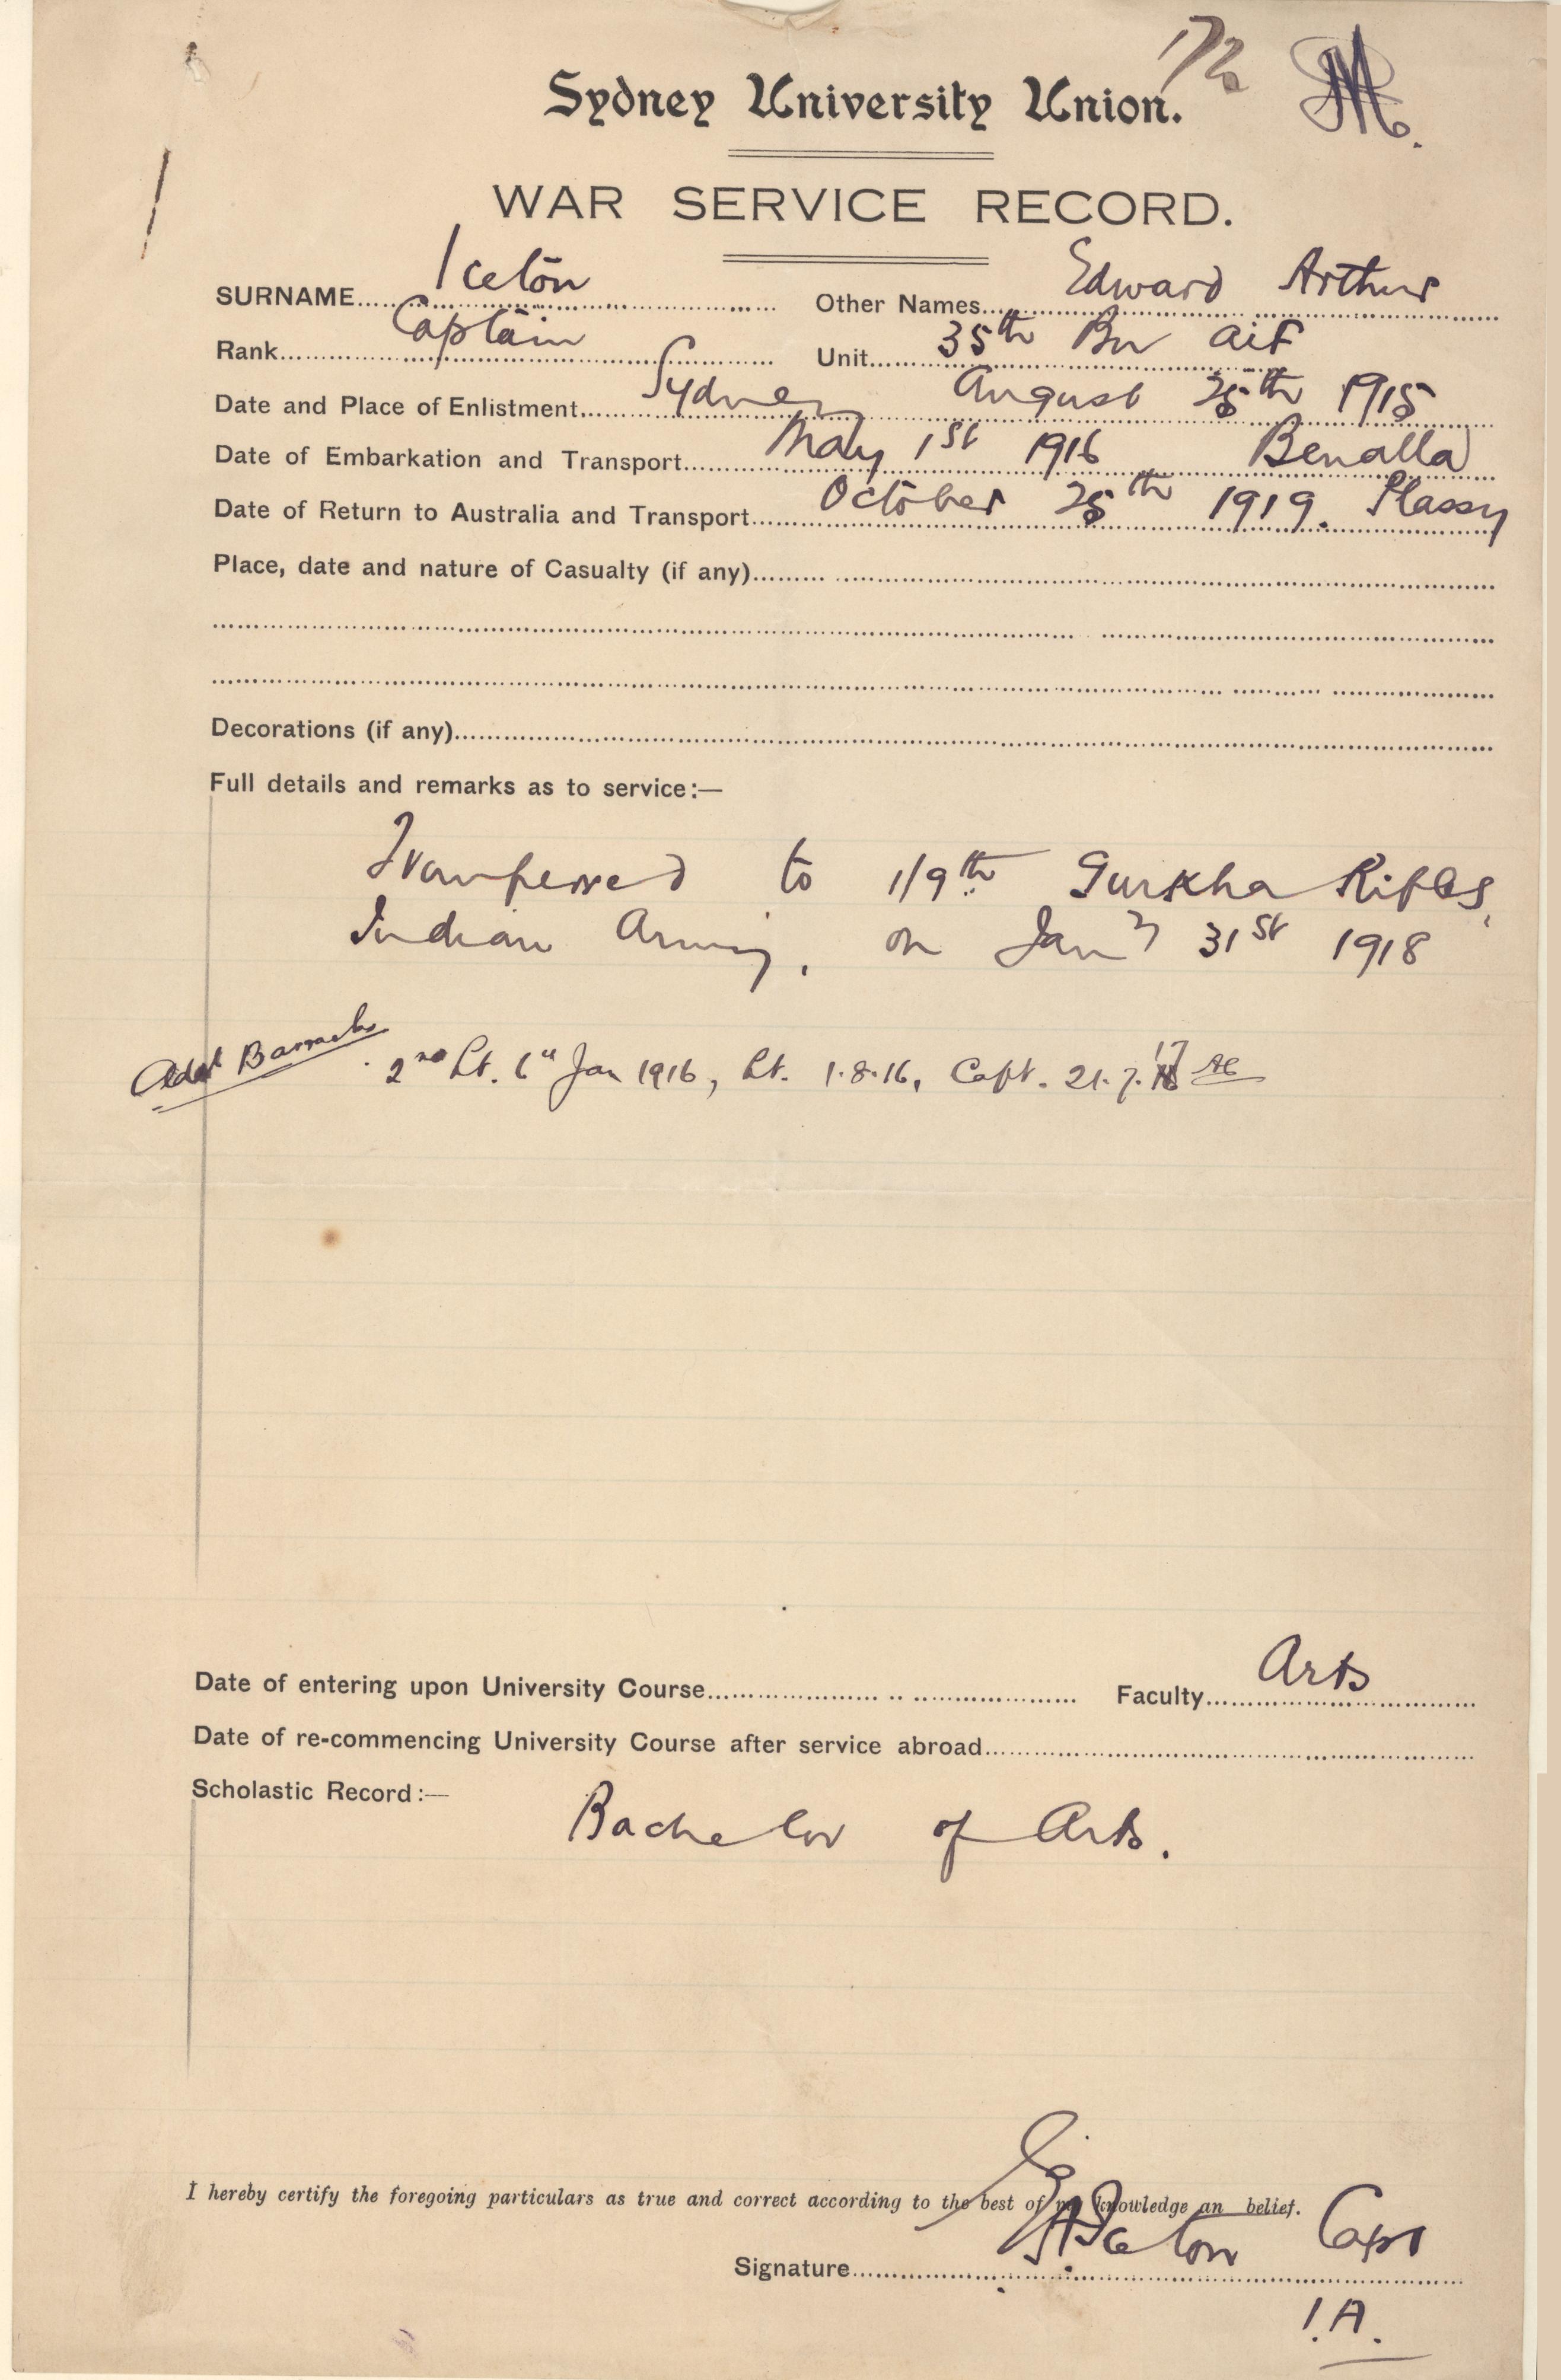 172
Sydney University Union.
WAR SERVICE RECORD.
SURNAME Iceton Other Names Edward Arthur
Rank Captain Unit 35th Bn AIF
Date and Place of Enlistment Sydney August 25th 1915
Date of Embarkation and Transport May 1st 1916 Benalla
Date of Return to Australia and Transport October 25th 1919. Plassy
Place, date and nature of Casualty (if any)
Decorations (if any)
Full details and remarks as to service:—
Transferred to 1/9th Gurkha Rifles,
Indian Army, on Jany 31st 1918
Barracks 2nd Lt. 6th Jan 1916, Lt. 1.8.16, Capt. 21.7.17
Date of entering upon University Course Faculty Arts
Date of re-commencing University Course after service abroad
Scholastic Record:—
Bachelor of Arts.
I hereby certify the foregoing particulars as true and correct according to the best of my knowledge an belief.
Signature EA Iceton Capt
I.A.